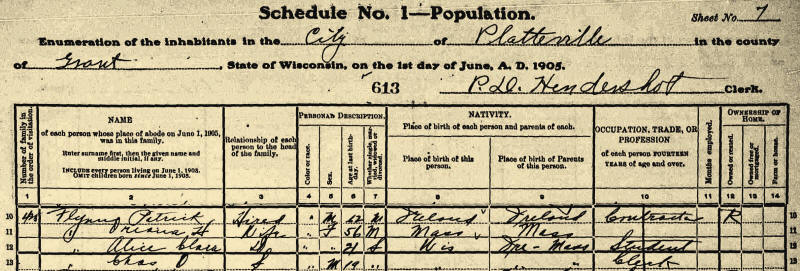 Schedule No. 1—Population.
Sheet No. 7
Enumeration of the inhabitants in the City of Platteville in the county
of Grant, State of Wisconsin, on the 1st day of June, A. D. 1905.
613 P. D. Hendershot Clerk.
Number of family in the order of visitation.
NAME
of each person whose place of abode on June 1, 1905, was in this family.
Enter surname first, then the given name and middle initial, if any.
INCLUDE every person living on June 1, 1905.
OMIT children born since June 1, 1905.
Relationship of each person to the head of the family.
PERSONAL DESCRIPTION.
Color or race.
Sex.
Age at last birthday.
Whether single, married, widowed or divorced.
NATIVITY.
Place of birth of each person and parents of each.
Place of birth of this person.
Place of birth of Parents of this person.
OCCUPATION, TRADE, OR PROFESSION
of each person FOURTEEN YEARS of age and over.
Months employed.
OWNERSHIP OF HOME.
Owned or rented.
Owned free or mortgaged.
Farm or house.
1 2 3 4 5 6 7 8 9 10 11 12 13 14
10 Flynn Patrick " M 62 M Ireland Ireland Contractor R 10
11 " Wife " F 56 M Mass Mass 11
12 " Alice Clara D " " 21 S Wis Ire-Mass Student 12
13 " Chas S " M 19 " " " Clerk 13